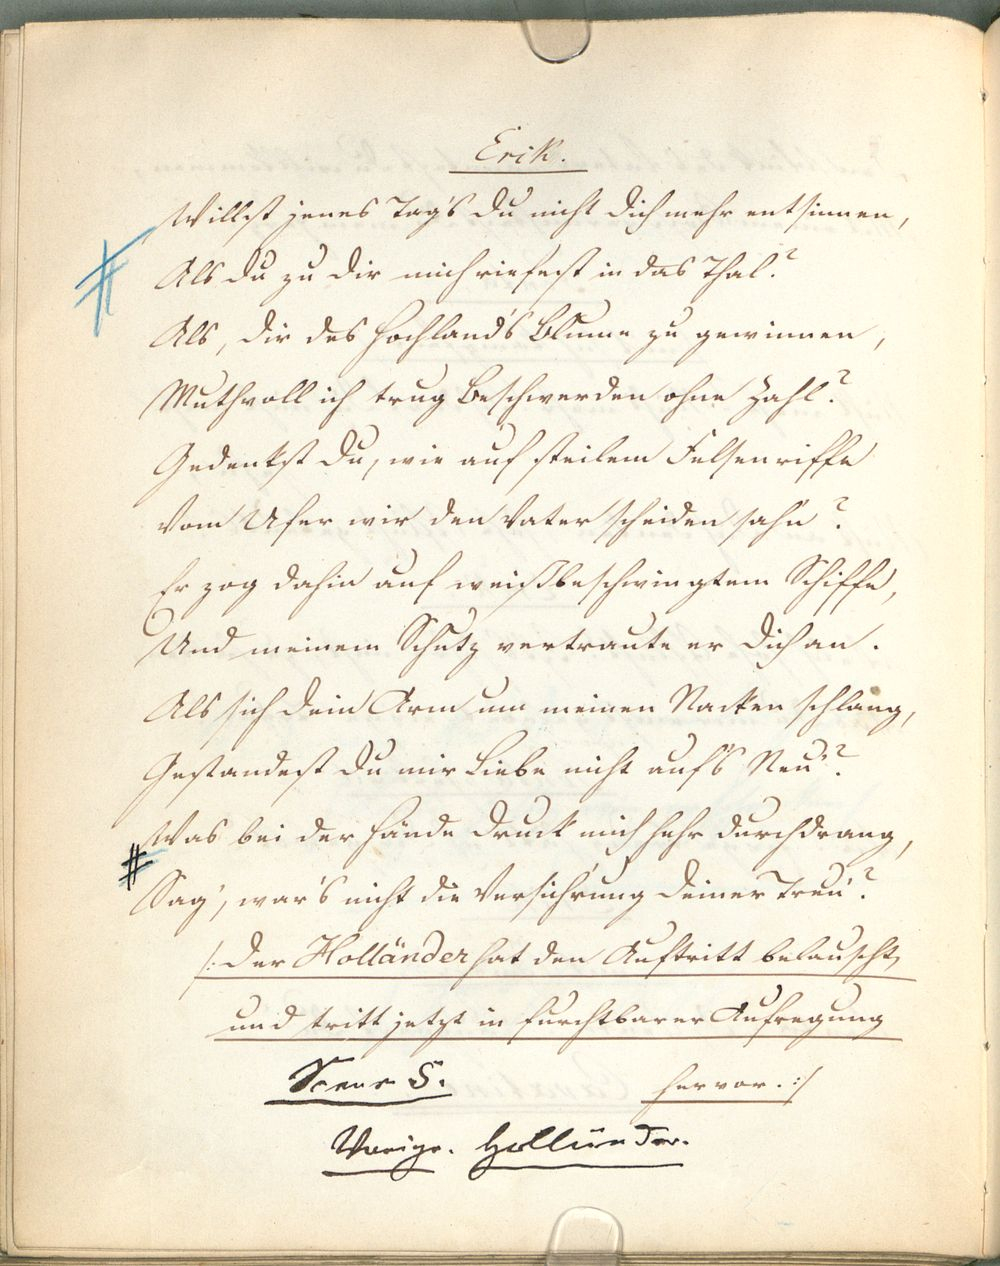 Erik.
Willst jenes Tag's du nicht dich mehr entsinnen,
Als du zu dir mich riefest in das Thal?
Als, dir des Hochland's Blume zu gewinnen,
Muthvoll ich trug Beschwerden ohne Zahl?
Gedenkst du, wie auf steilem Felsenriffe
Vom Ufer wir den Vater scheiden sah'n?
Er zog dahin auf weißbeschwingtem Schiffe,
Und meinem Schutz vertraute er dich an.
Als sich dein Arm um meinen Nacken schlang,
Gestandest du mir Liebe nicht auf's Neu'?
Was bei der Hände Druck mich hehr durchdrang,
Sag', war's nicht die Versich'rung deiner Treu'?
/: Der Holländer hat den Auftritt belauscht,
und tritt jetzt in furchtbarer Aufregung
hervor. :/
Scene 5.
Vorige. Holländer.